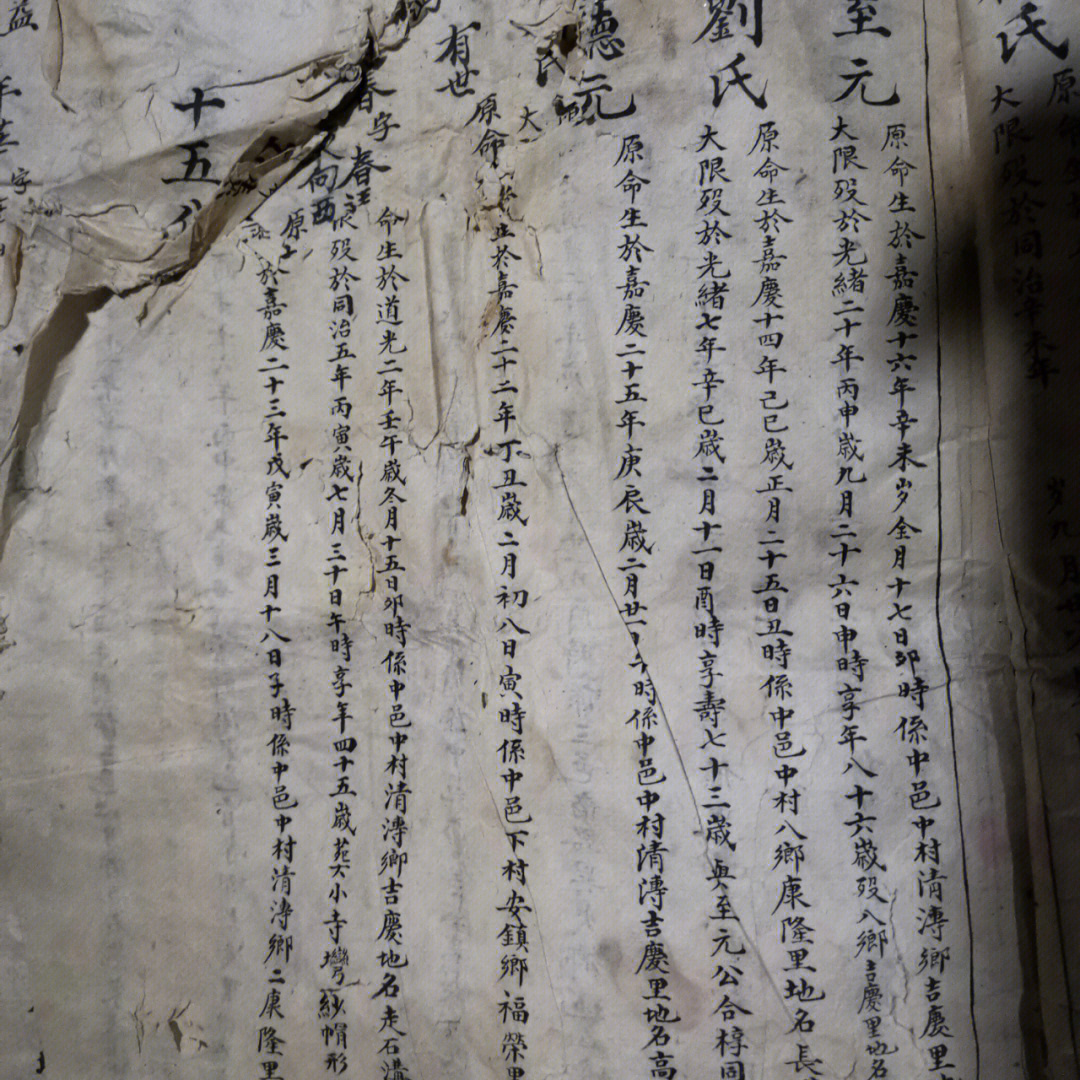 氏
大限歿於同治辛未年
至元
原命生於嘉慶十六年辛未岁全月十七日卯時係中邑中村清溥鄉吉慶里
大限歿於光緒二十年丙申歲九月二十六日申時享年八十六歲歿八鄉吉慶里地名
劉氏
原命生於嘉慶十四年己巳歲正月二十五日丑時係中邑中村八鄉康隆里地名長
大限歿於光緒七年辛巳歲二月十一日酉時享壽七十三歲與至元公合椁同
德元
原命生於嘉慶二十五年庚辰歲二月廿 午時係中邑中村清溥吉慶里地名高
氏
大
原命 生於嘉慶二十二年丁丑歲二月初八日寅時係中邑下村安鎮鄉福榮里
有世
春字春
命生於道光二年壬午歲冬月十五日卯時係中邑中村清溥鄉吉慶地名走石溝
限歿於同治五年丙寅歲七月三十日午時享年四十五歲苑大小寺灣紗帽形
向西
原 於嘉慶二十三年戊寅歲三月十八日子時係中邑中村清溥鄉二康隆里
十五
益
年
字